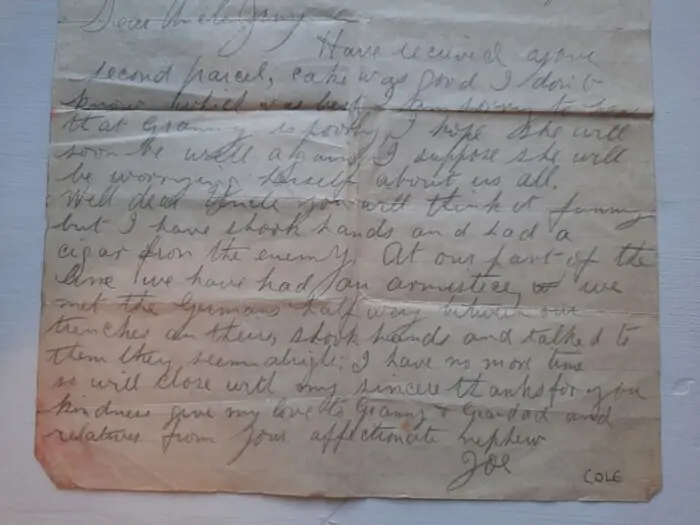 Dear Uncle
Have received your
second parcel, cake was good I don't
know which was best I am sorry to hear
that Granny is poorly, I hope she will
soon be well again, I suppose she will
be worrying herself about us all.
Well dear Uncle you will think it funny
but I have shook hands and had a
cigar from the enemy. At our part of the
line we have had an armistice, we
met the Germans half way between our
trenches an theirs, shook hands and talked to
them they seem alright; I have no more time
so will close with my sincere thanks for you
kindness give my love to Granny & Grandad and
relatives from your affectionate nephew
Joe
COLE